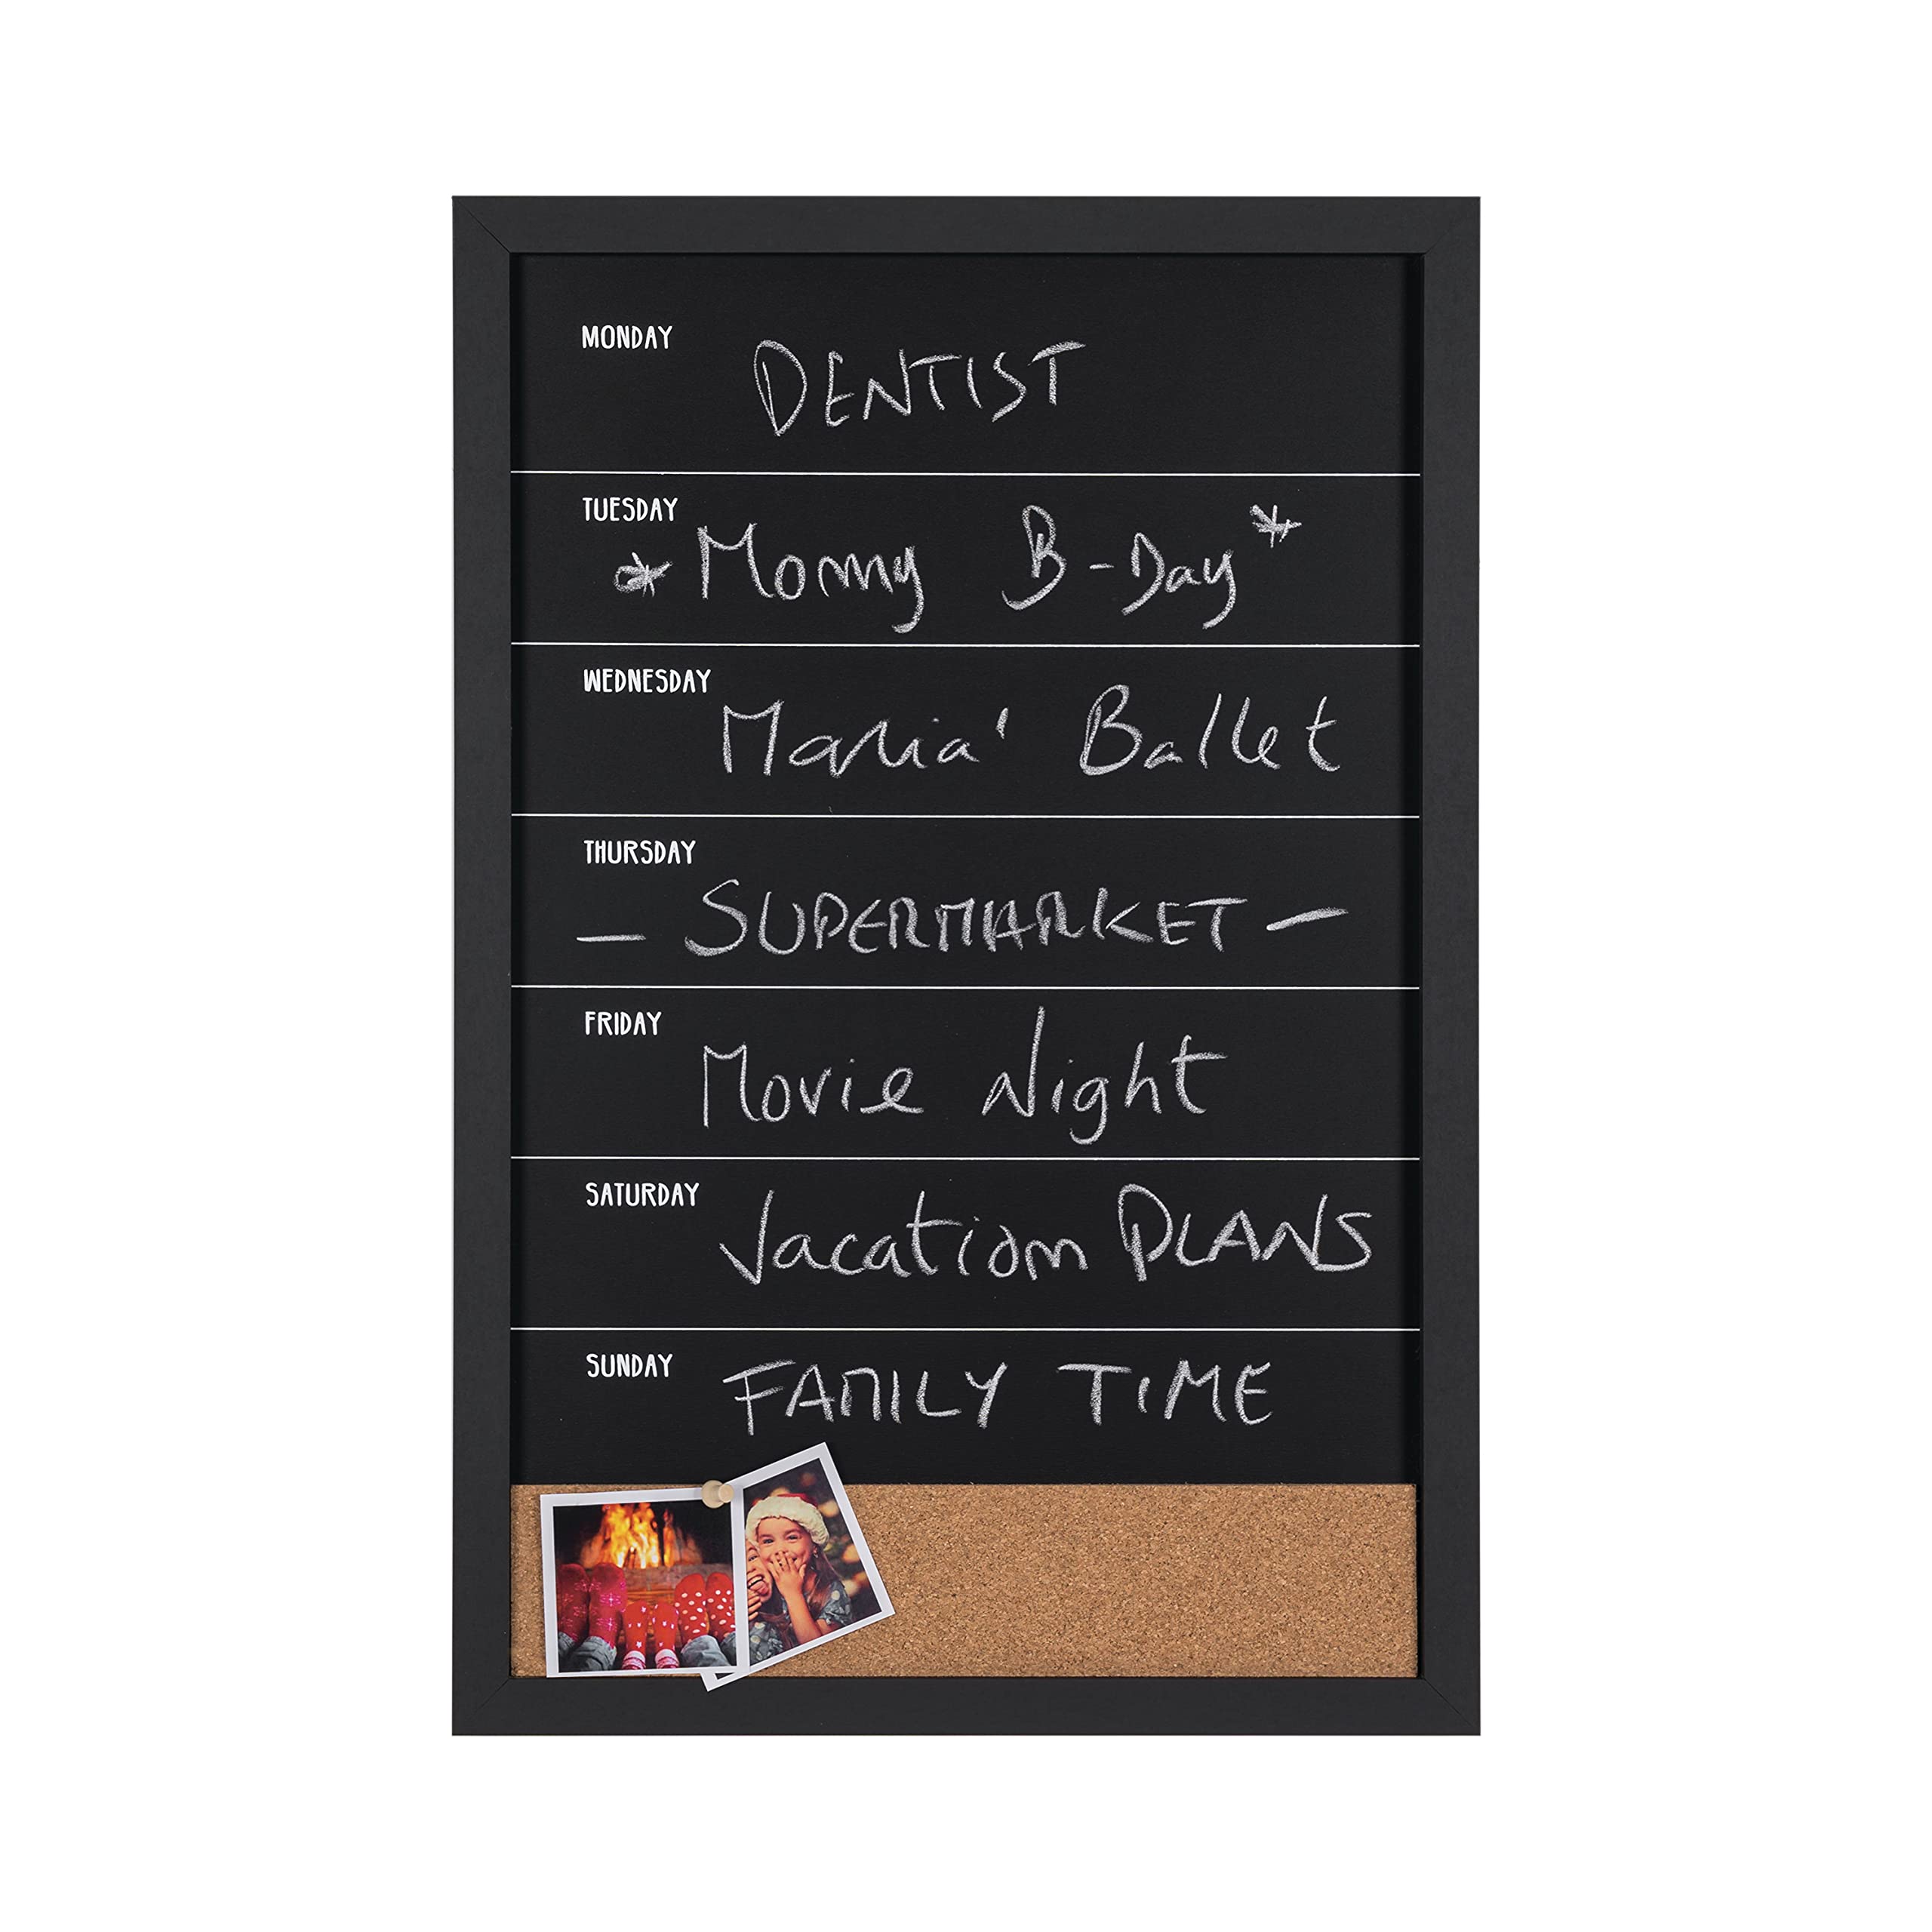 MONDAY
DENTIST
TUESDAY
* Mommy B-Day *
WEDNESDAY
Maria' Ballet
THURSDAY
- SUPERMARKET -
FRIDAY
Movie Night
SATURDAY
Vacation PLANS
SUNDAY
FAMILY TIME